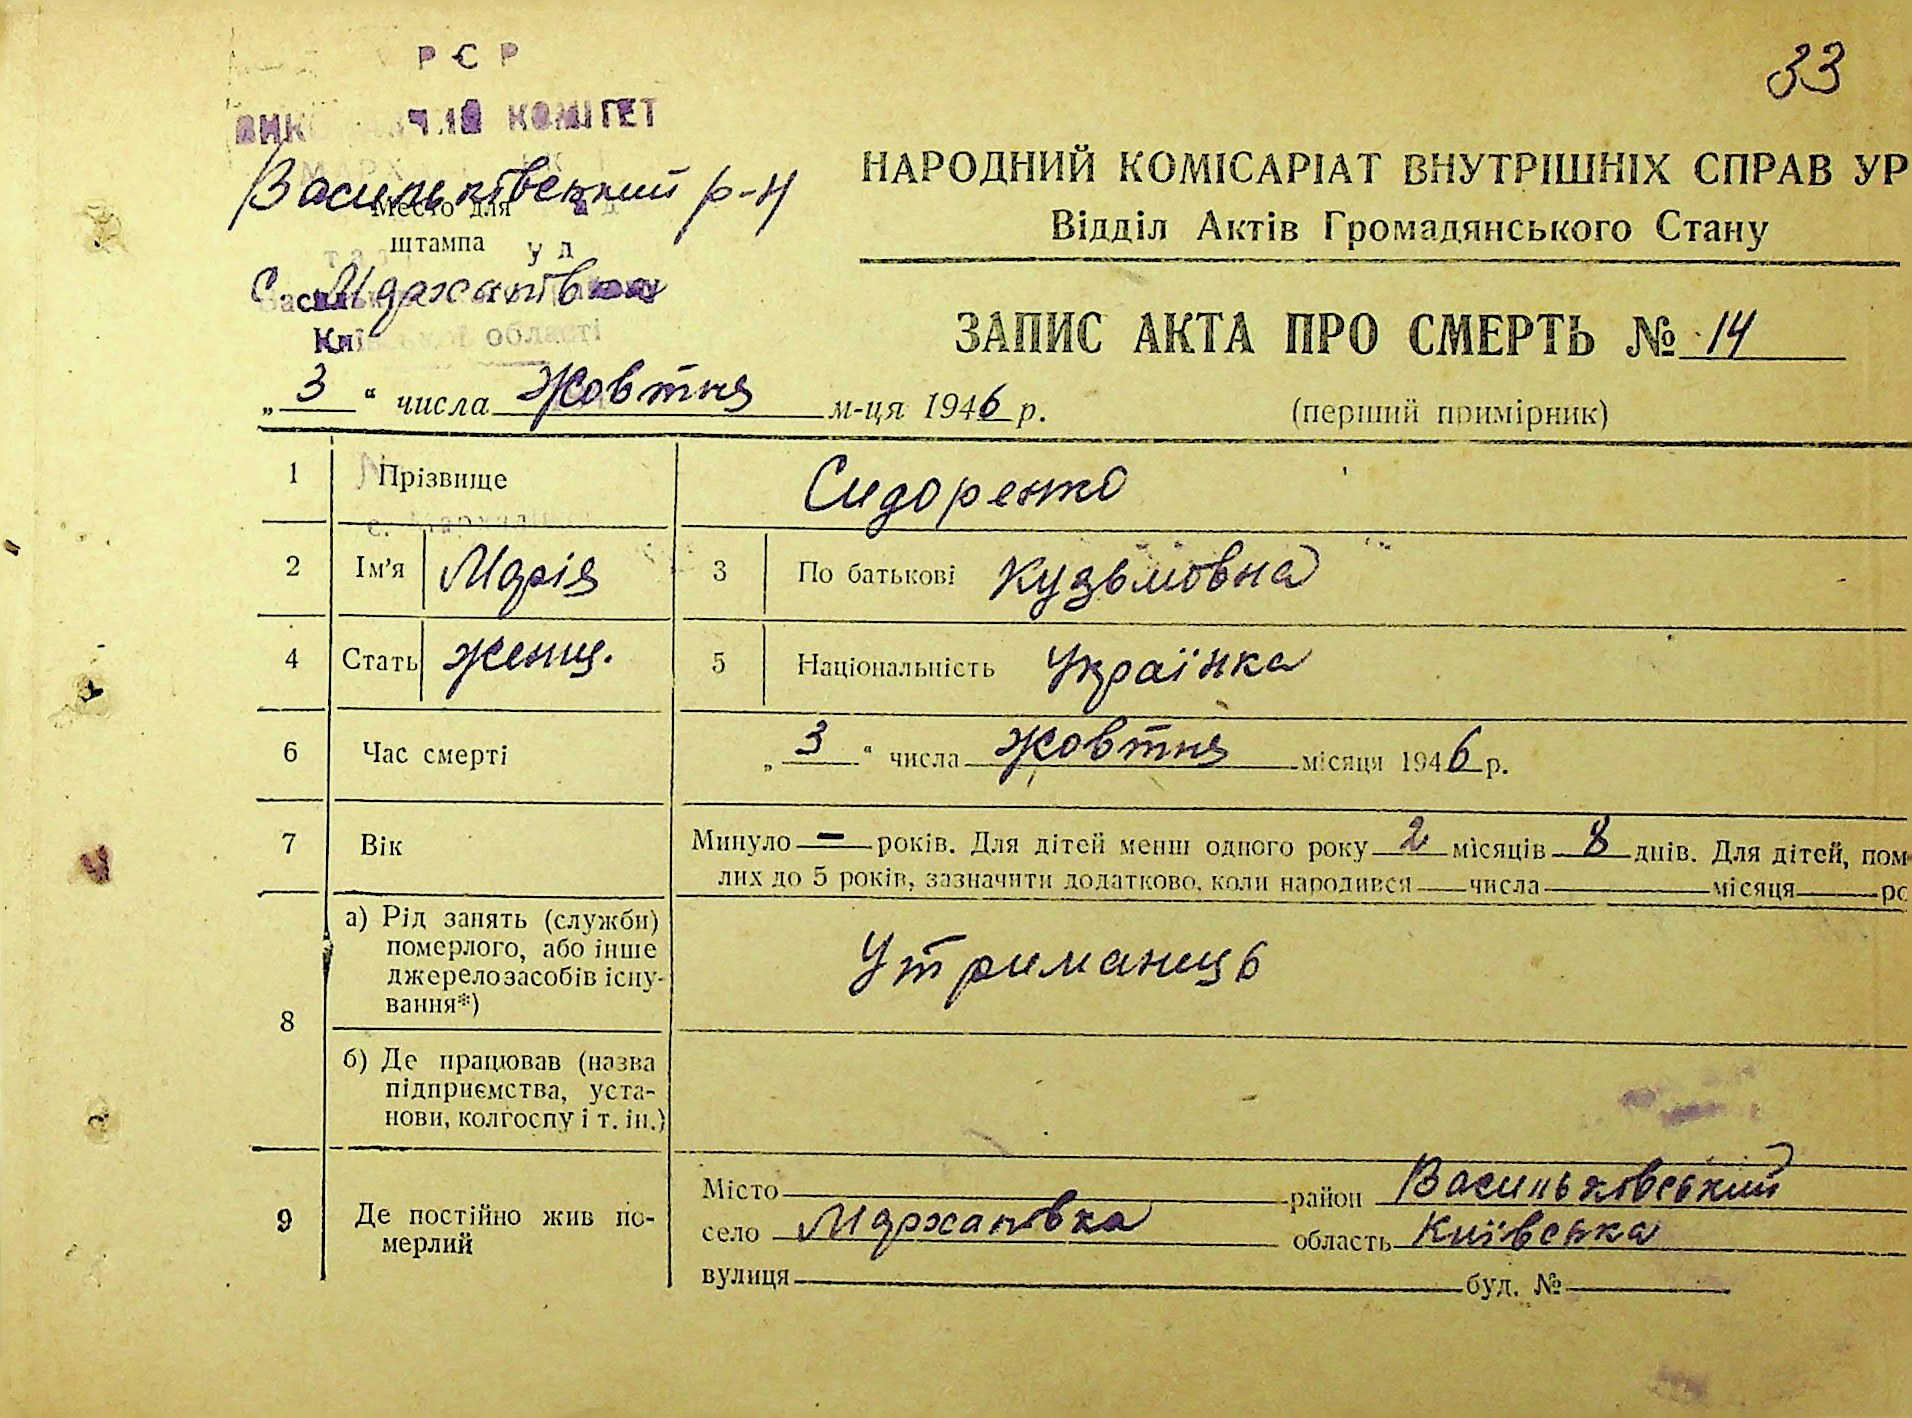 33
РЄР
КОМІТЕТ
Васильківський р-н
Место для
штампа
с. Мархалівка
області
НАРОДНИЙ КОМІСАРІАТ ВНУТРІШНІХ СПРАВ УР
Відділ Актів Громадянського Стану
ЗАПИС АКТА ПРО СМЕРТЬ № 14
„ 3 “ числа Жовтня м-ця 1946 р.
(перший примірник)
1 Прізвище Сидоренко
2 Ім'я Марія 3 По батькові Кузьмовна
4 Стать женщ. 5 Національність Українка
6 Час смерті „ 3 “ числа Жовтня місяця 1946 р.
7 Вік Минуло — років. Для дітей менш одного року 2 місяців 8 днів. Для дітей, пом
лих до 5 років, зазначити додатково, коли народився числа місяця ро
8 а) Рід занять (служби)
померлого, або інше
джерело засобів існу-
вання*)
Утриманець
б) Де працював (назва
підприємства, уста-
нови, колгоспу і т. ін.)
9 Де постійно жив по-
мерлий
Місто район Васильковський
село Мархаловка область Київська
вулиця буд. №